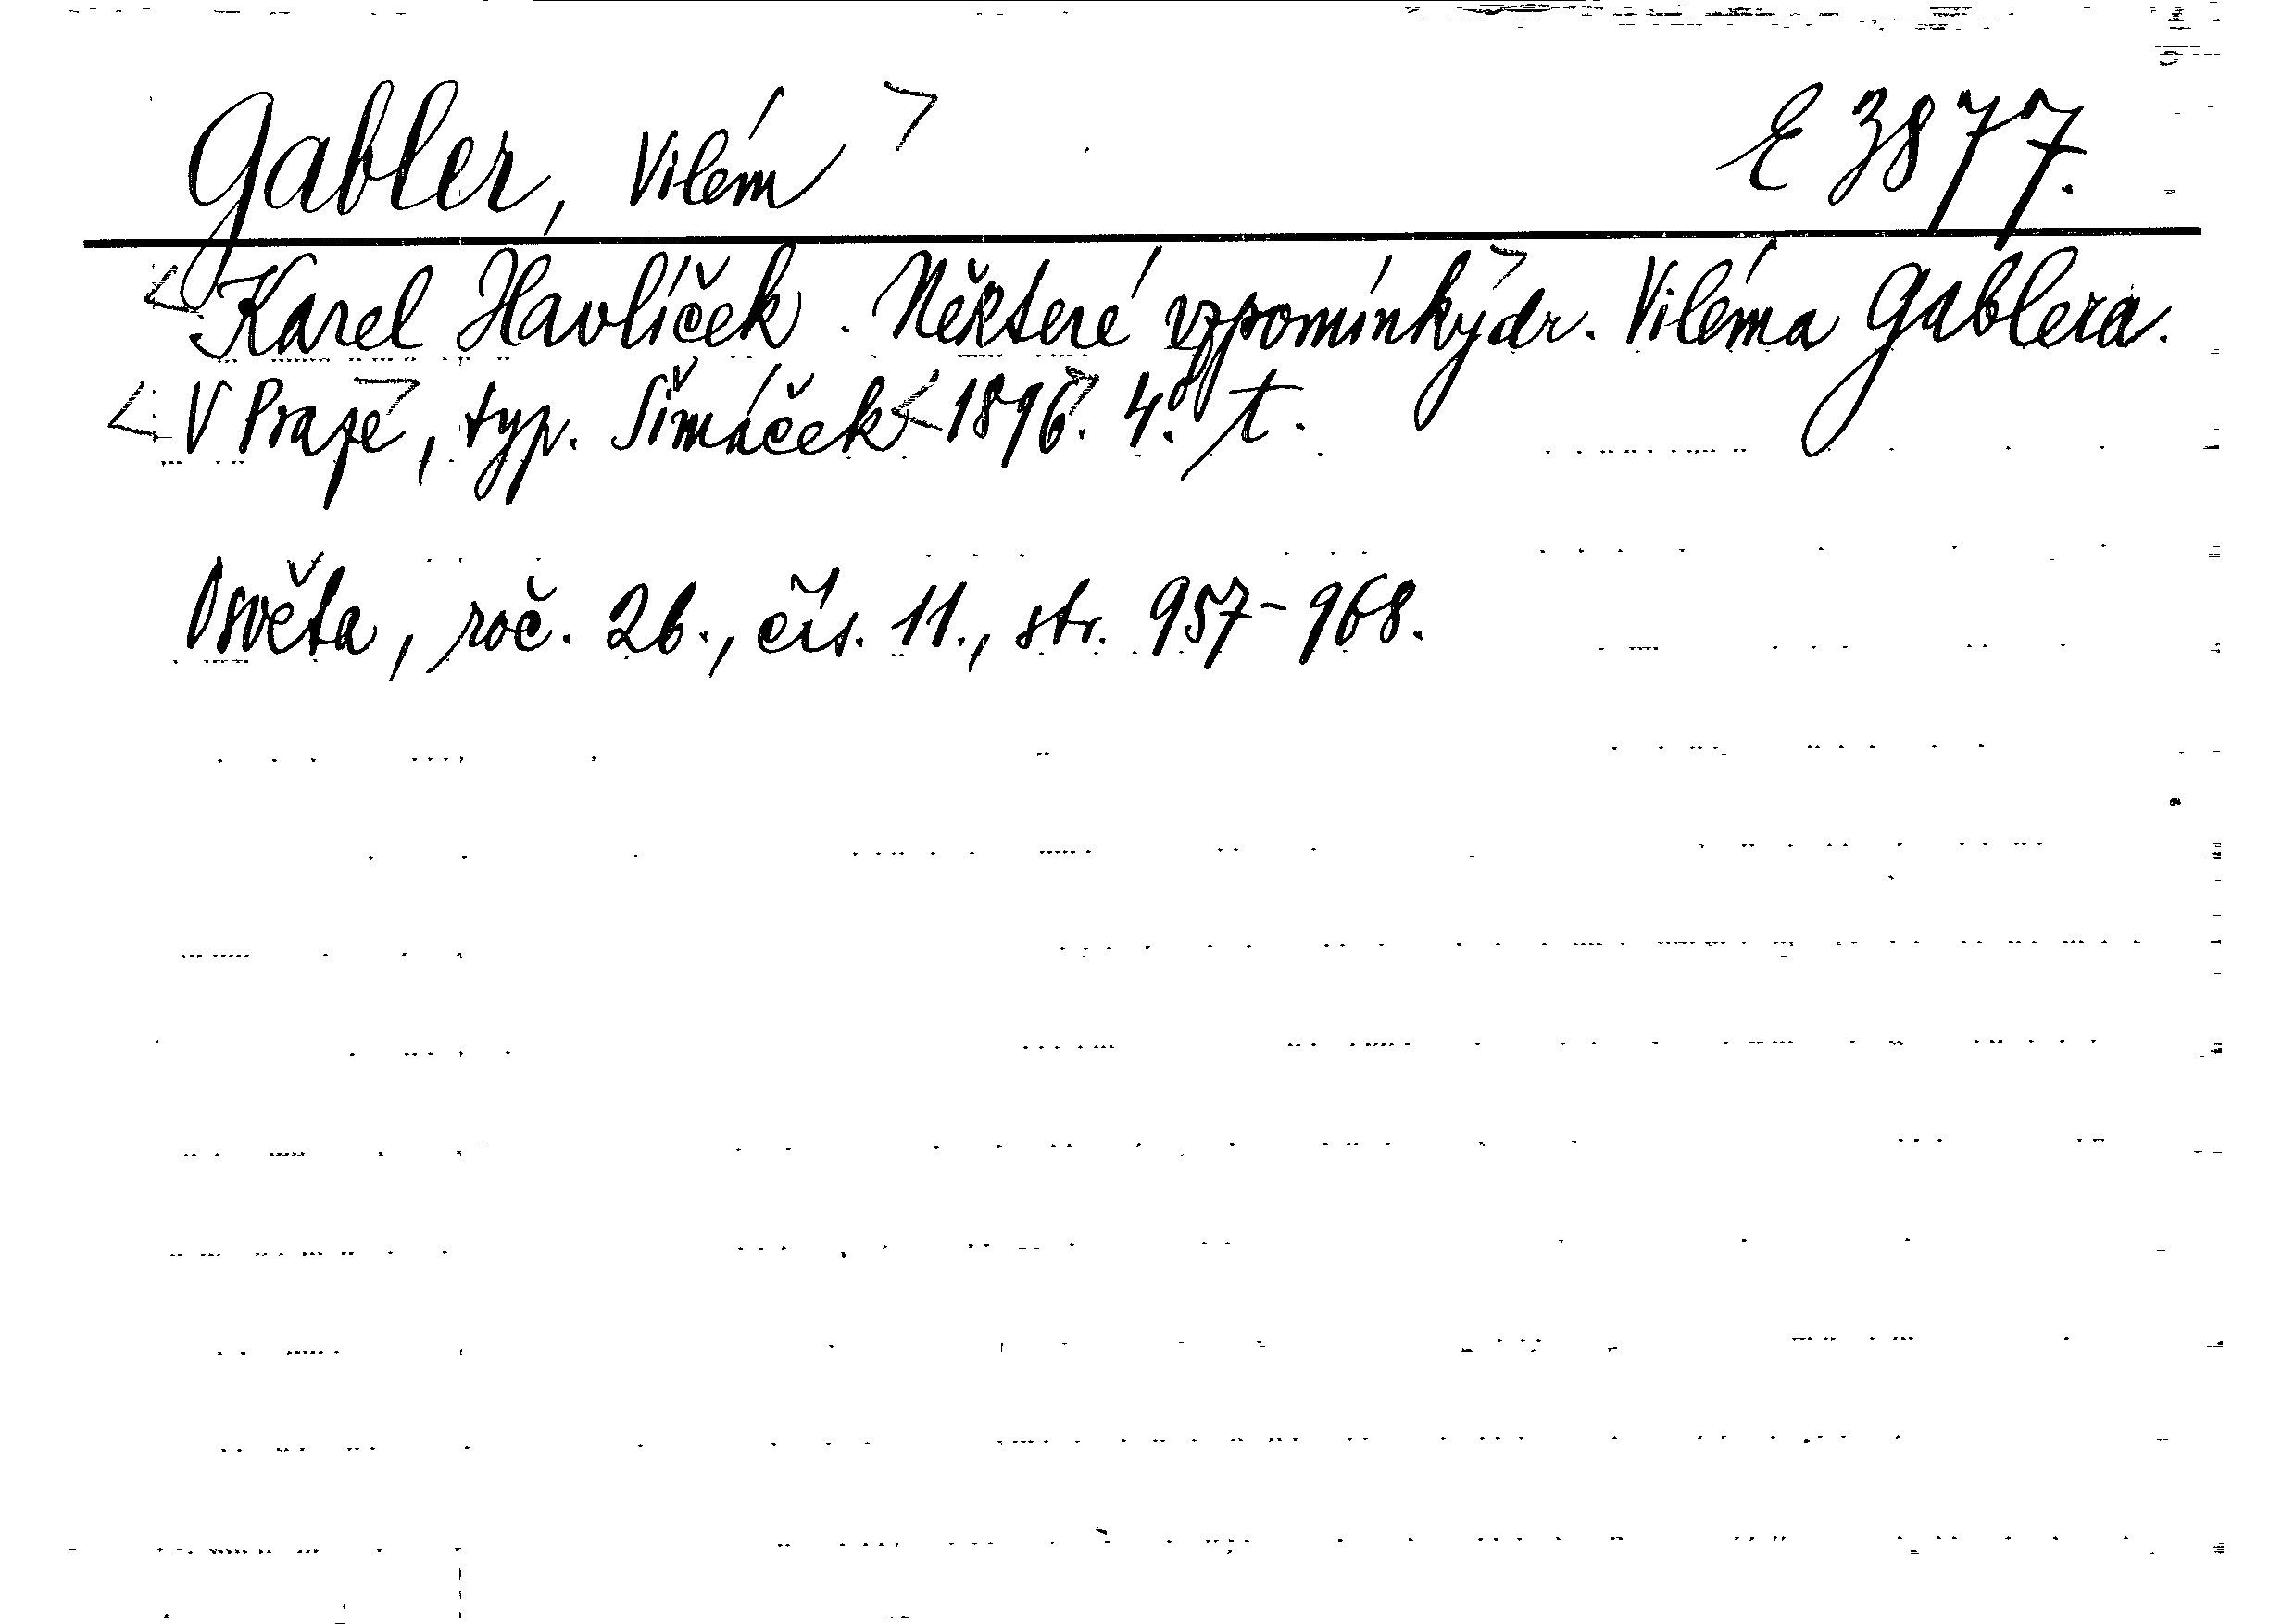 Gabler, Vilém > E 3877.
<Karel Havlíček. Některé vzpomínky> dr. Viléma Gablera.
<V Praze>, typ. Šimáček <1896>. 4.° t.
Osvěta, roč. 26., čís. 11., str. 957-968.